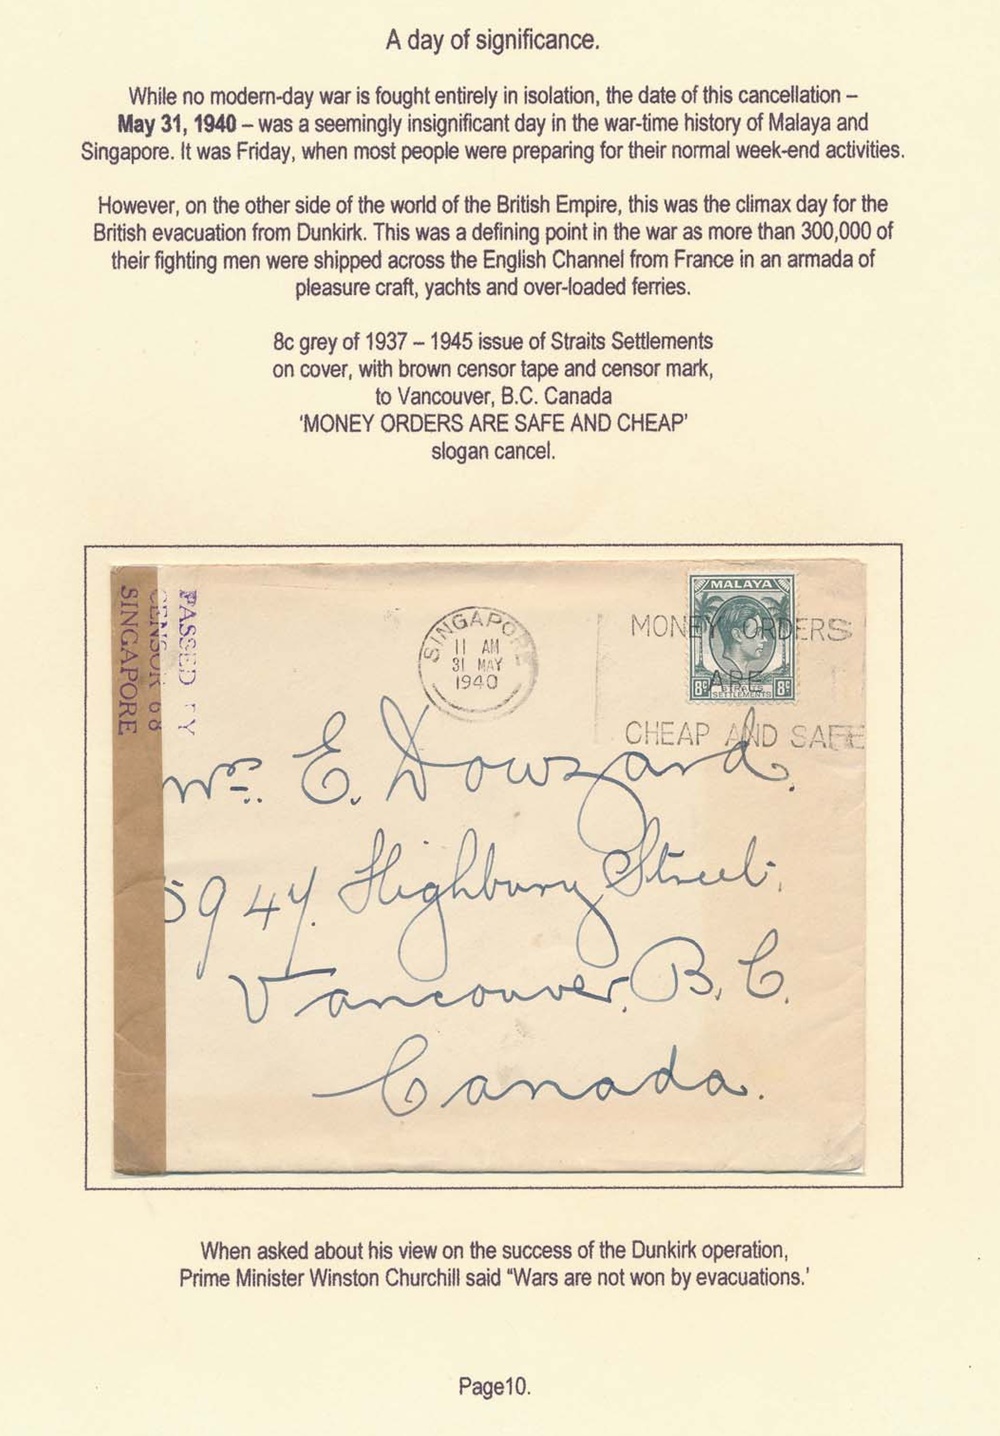 A day of significance.
While no modern-day war is fought entirely in isolation, the date of this cancellation –
May 31, 1940 – was a seemingly insignificant day in the war-time history of Malaya and
Singapore. It was Friday, when most people were preparing for their normal week-end activities.
However, on the other side of the world of the British Empire, this was the climax day for the
British evacuation from Dunkirk. This was a defining point in the war as more than 300,000 of
their fighting men were shipped across the English Channel from France in an armada of
pleasure craft, yachts and over-loaded ferries.
8c grey of 1937 – 1945 issue of Straits Settlements
on cover, with brown censor tape and censor mark,
to Vancouver, B.C. Canada
'MONEY ORDERS ARE SAFE AND CHEAP'
slogan cancel.
PASSED
CENSOR 68
SINGAPORE
SINGAPORE
11 AM
31 MAY
1940
MONEY ORDERS
ARE
CHEAP AND SAFE
MALAYA
8c STRAITS SETTLEMENTS 8c
Mrs. E. Dowzard.
5947 Highbury Street.
Vancouver, B.C.
Canada.
When asked about his view on the success of the Dunkirk operation,
Prime Minister Winston Churchill said "Wars are not won by evacuations.'
Page10.